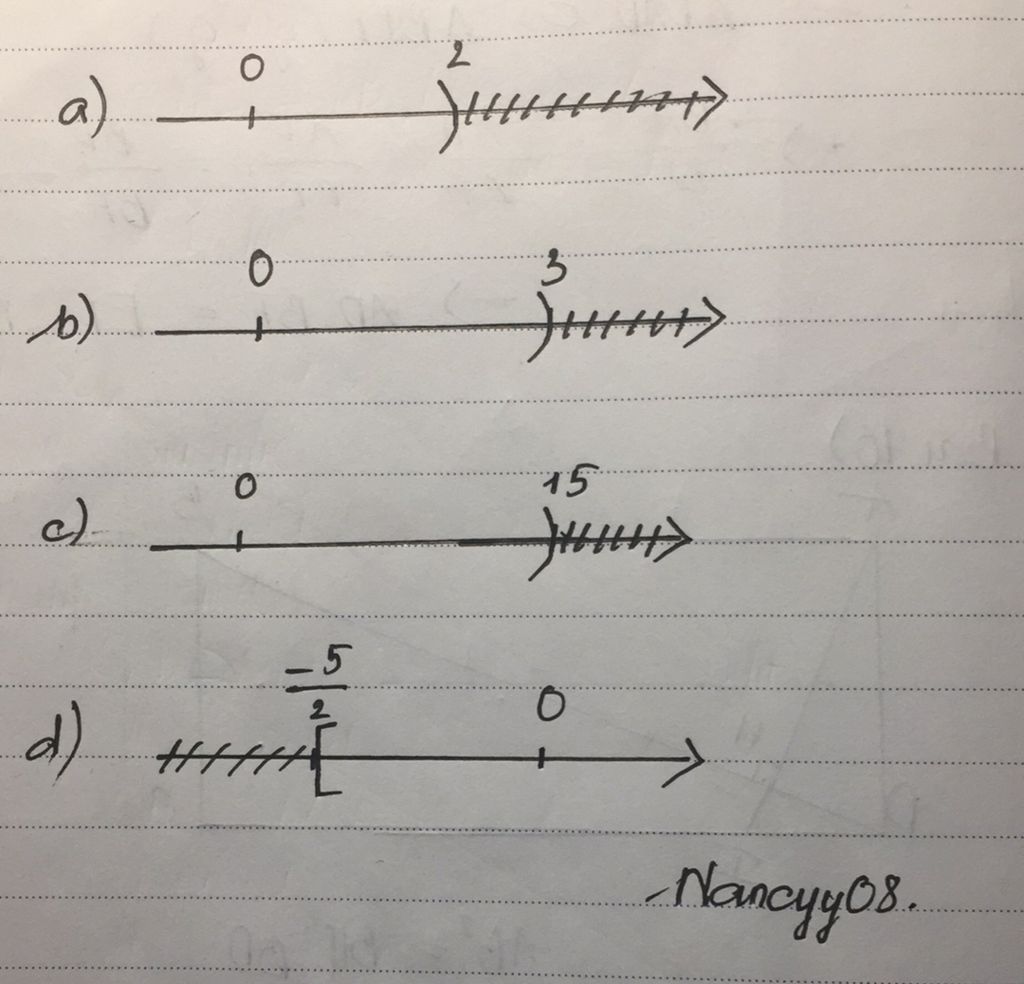 0 2
a) )
0 3
b) )
0 15
c) )
-5
2 0
d) [
-Nancyy08.